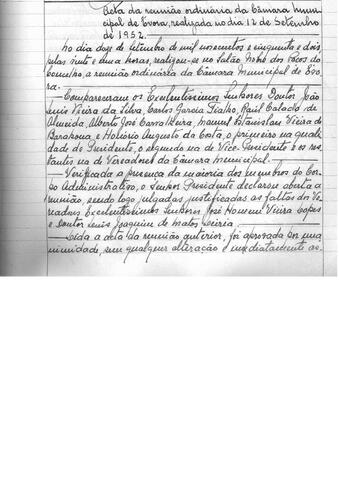 Acta da reunião ordinária da Câmara Muni-
cipal de Évora, realizada no dia 12 de Setembro
de 1952.
No dia doze de Setembro de mil novecentos e cinquenta e dois
pelas vinte e uma horas, realizou-se no Salão Nobre dos Paços do
Concelho, a reunião ordinária da Câmara Municipal de Évo-
ra.
— Compareceram os Excelentíssimos Senhores Doutor João
Luís Vieira da Silva, Carlos Garcia Fialho, Raúl Calado de
Almeida, Alberto José Carvalheira, Manuel Estanislau Vieira de
Barahona, e Hotório Augusto da Costa, o primeiro na quali-
dade de Presidente, o segundo na de Vice-Presidente e os res-
tantes na de Vereadores da Câmara Municipal.
— Verificada a presença da maioria dos membros do Cor-
po Administrativo, o Senhor Presidente declarou aberta a
reunião, sendo logo julgadas justificadas as faltas dos Ve-
readores Excelentíssimos Senhores José Homem Vieira Lopes
e Doutor Luís Joaquim de Matos
— Lida a acta da reunião anterior, foi aprovada por una-
nimidade, sem qualquer alteração e imediatamente as-